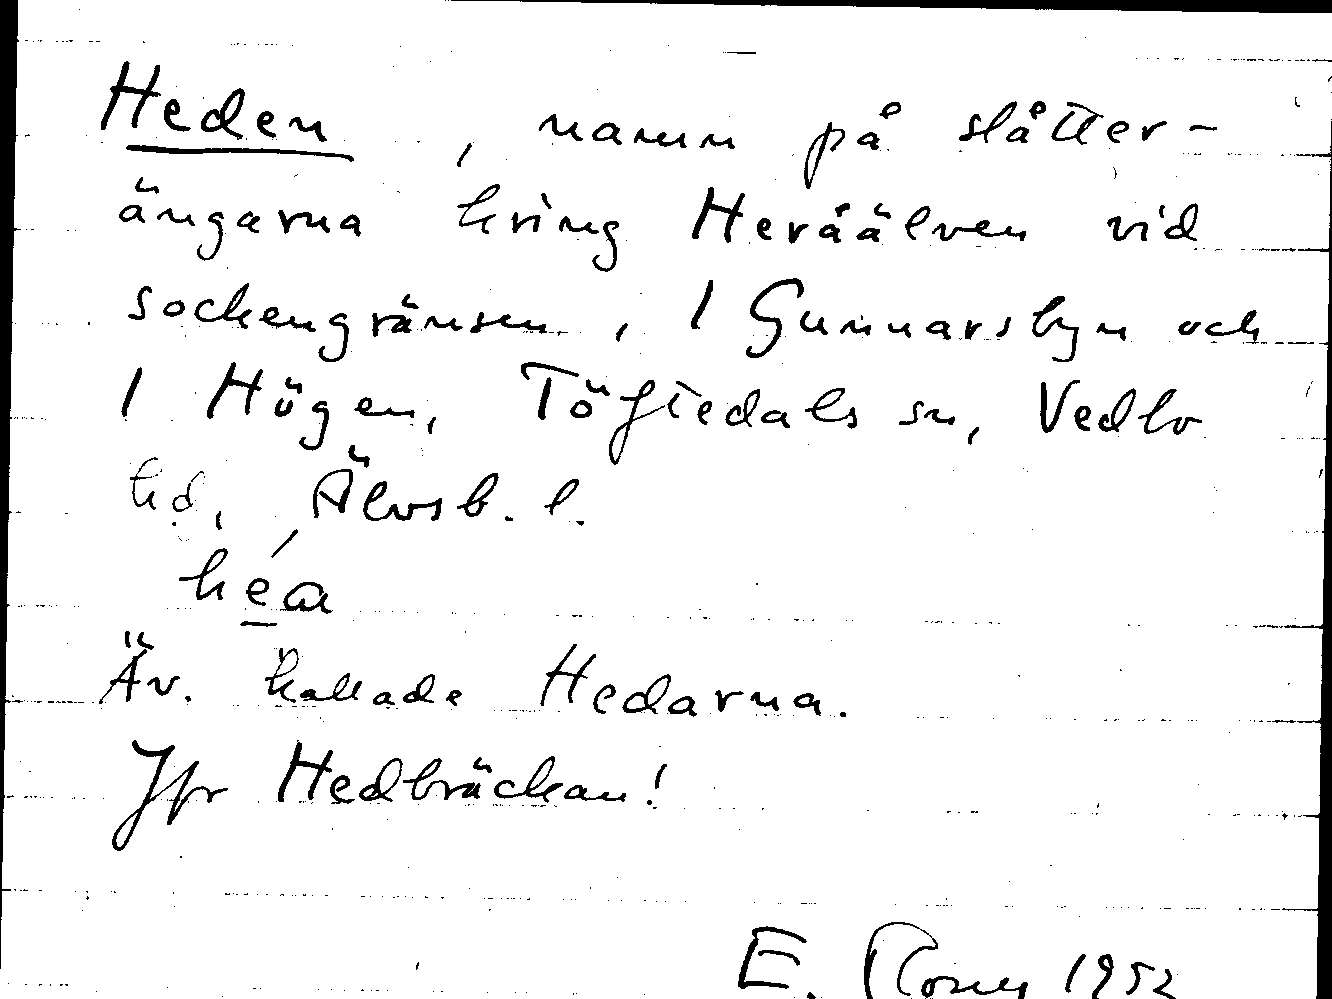 Heden, namn på slåtter-
ängarna kring Heråälven vid
sockengränsen, 1 Gunnarsbyn och
1 Högen, Töftedals sn, Vedbo
hd, Älvsb. l.
héa
Äv. kallade Hedarna.
Jfr Hedbräckan!
E. 1952